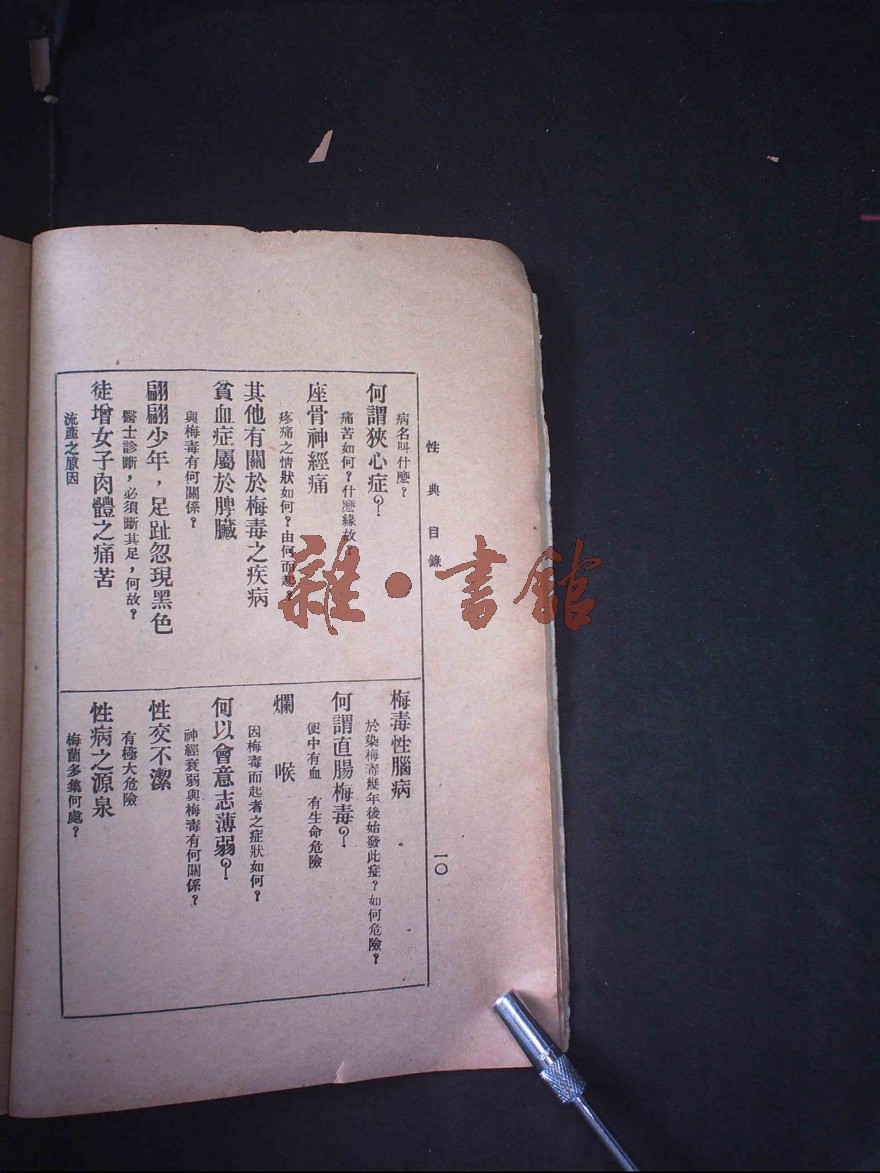 性典目錄
一〇
病名叫什麽？
何謂狹心症？
痛苦如何？什麽緣故？
座骨神經痛
疼痛之情狀如何？由何而起？
其他有關於梅毒之疾病
貧血症屬於脾臟
與梅毒有何關係？
翩翩少年，足趾忽現黑色
醫士診斷，必須斷其足，何故？
徒增女子肉體之痛苦
流產之原因
梅毒性腦病
於染梅毒幾年後始發此症？如何危險？
何謂直腸梅毒？
便中有血　有生命危險
爛　喉
因梅毒而起者之症狀如何？
何以會意志薄弱？
神經衰弱與梅毒有何關係？
性交不潔
有極大危險
性病之源泉
梅菌多集何處？
雜·書館